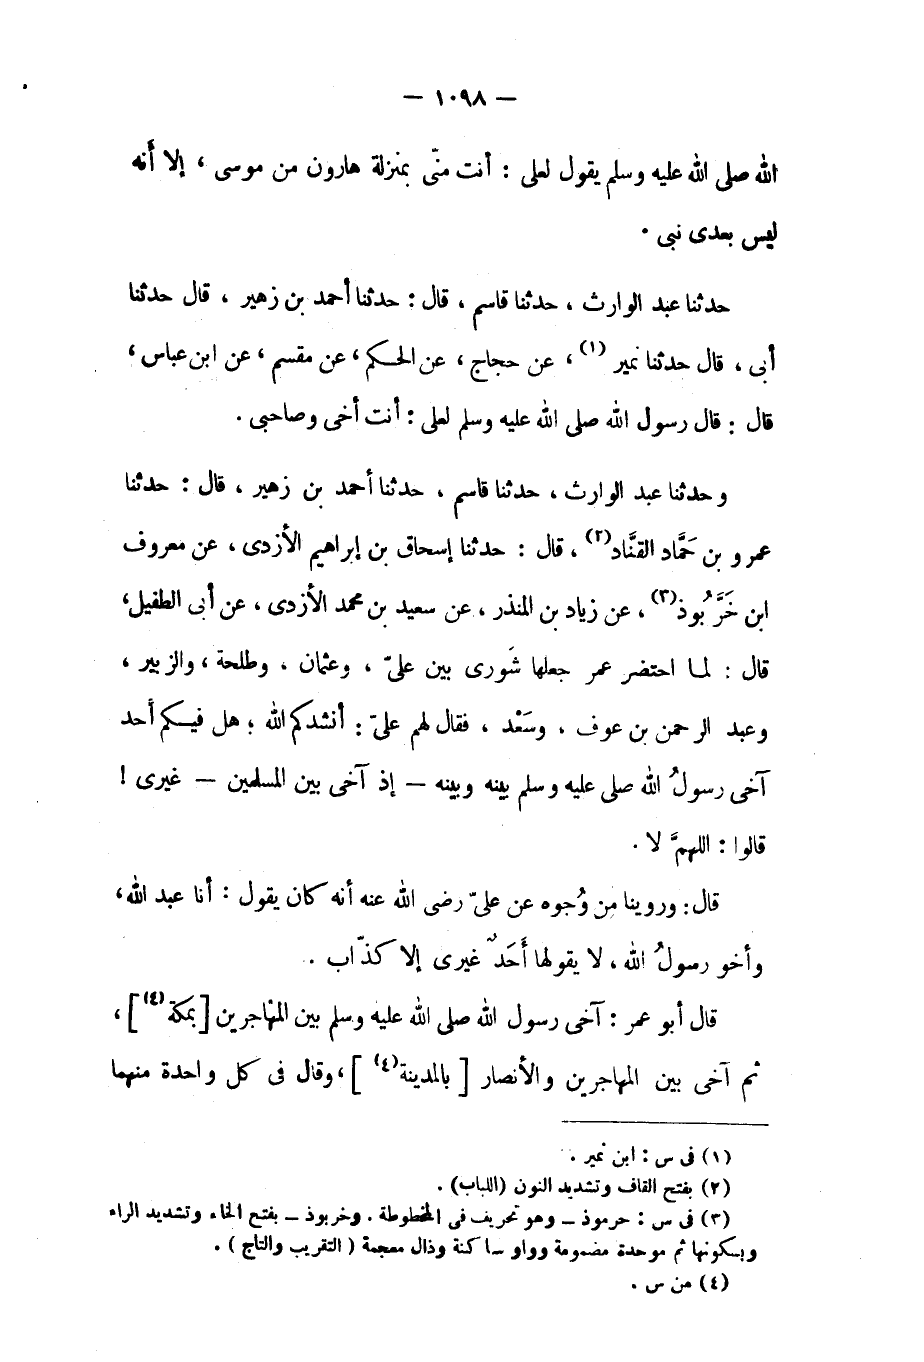 — ١٠٩٨ —
الله صلى الله عليه وسلم يقول لعلى : أنت منّى بمنزلة هارون من موسى ، إلا أنه
ليس بعدى نبى .
حدثنا عبد الوارث ، حدثنا قاسم ، قال : حدثنا أحمد بن زهير ، قال حدثنا
أبى ، قال حدثنا نمير (١) ، عن حجاج ، عن الحكم ، عن مقسم ، عن ابن عباس ،
قال : قال رسول الله صلى الله عليه وسلم لعلى : أنت أخى وصاحبى .
وحدثنا عبد الوارث ، حدثنا قاسم ، حدثنا أحمد بن زهير ، قال : حدثنا
عمرو بن حَمَّاد القنَّاد (٢) ، قال : حدثنا إسحاق بن إبراهيم الأزدى ، عن معروف
ابن خَرَّ بُوذ (٣) ، عن زياد بن المنذر ، عن سعيد بن محمد الأزدى ، عن أبى الطفيل ،
قال : لما احتضر عمر جعلها شَورى بين علىّ ، وعثمان ، وطلحة ، والزبير ،
وعبد الرحمن بن عوف ، وسَعْد ، فقال لهم علىّ : أنشدكم الله ؛ هل فيكم أحد
آخى رسولُ الله صلى عليه وسلم بينه وبينه — إذ آخى بين المسلمين — غيرى !
قالوا : اللهمَّ لا .
قال : وروينا من وُجوه عن علىّ رضى الله عنه أنه كان يقول : أنا عبد الله ،
وأخو رسولُ الله ، لا يقولها أَحَدٌ غيرى إلا كذّاب .
قال أبو عمر : آخى رسول الله صلى الله عليه وسلم بين المهاجرين [ بمكة (٤) ] ،
ثم آخى بين المهاجرين والأنصار [ بالمدينة (٤) ] ، وقال فى كل واحدة منهما
(١) فى س : ابن نمير .
(٢) بفتح القاف وتشديد النون (اللباب) .
(٣) فى س : حرموذ — وهو تحريف فى المخطوطة . وخربوذ — بفتح الخاء وتشديد الراء
وبسكونها ثم موحدة مضمومة وواو ساكنة وذال معجمة ( التقريب والتاج ) .
(٤) من س .